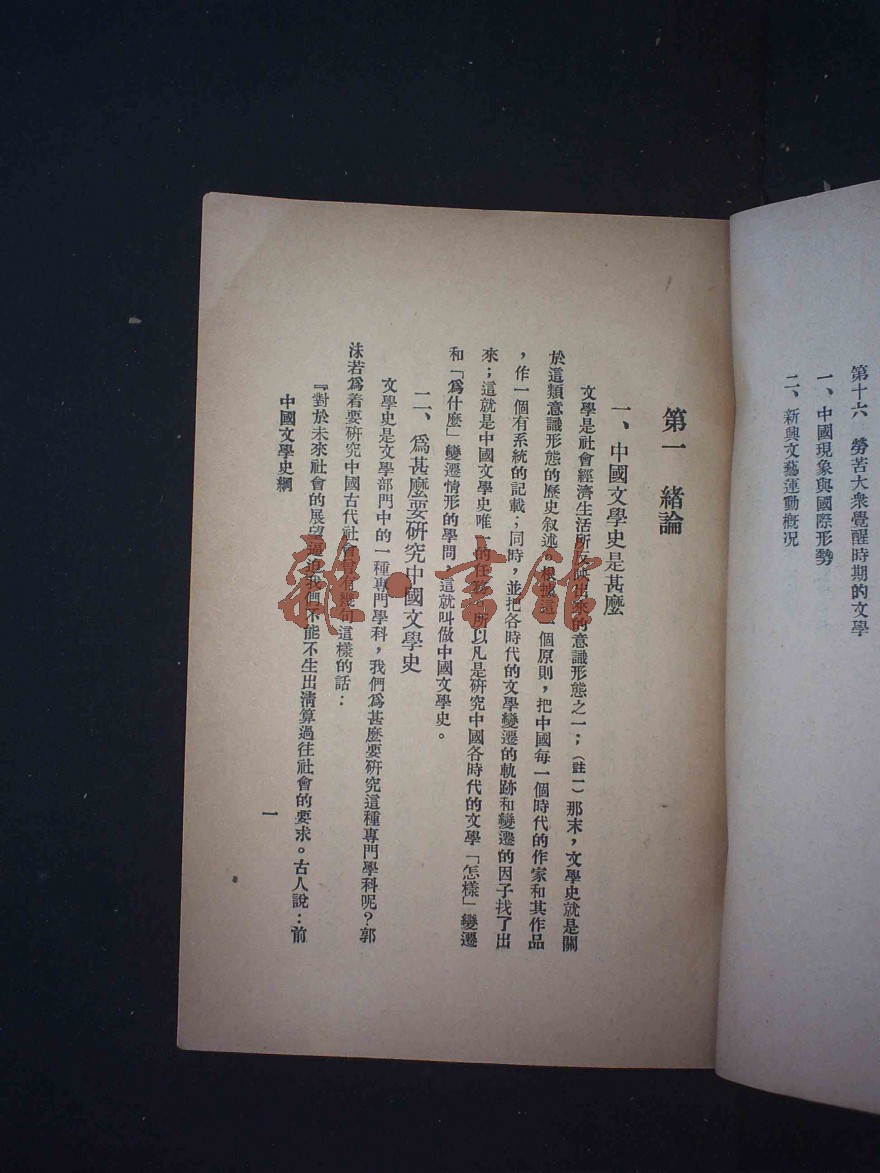 第十六　勞苦大衆覺醒時期的文學
一、中國現象與國際形勢
二、新興文藝運動概況
第一　緒論
一、中國文學史是甚麼
文學是社會經濟生活所反映出來的意識形態之一；（註一）那末，文學史就是關
於這類意識形態的歷史叙述。根據這一個原則，把中國每一個時代的作家和其作品
，作一個有系統的記載；同時，並把各時代的文學變遷的軌跡和變遷的因子找了出
來；這就是中國文學史唯一的任務。所以凡是研究中國各時代的文學「怎樣」變遷
和「爲什麼」變遷情形的學問，這就叫做中國文學史。
二、爲甚麼要研究中國文學史
文學史是文學部門中的一種專門學科，我們爲甚麼要研究這種專門學科呢？郭
沫若爲着要研究中國古代社會曾有幾句這樣的話：
『對於未來社會的展望逼迫我們不能不生出清算過往社會的要求。古人說：前
中國文學史綱
一
雜·書館